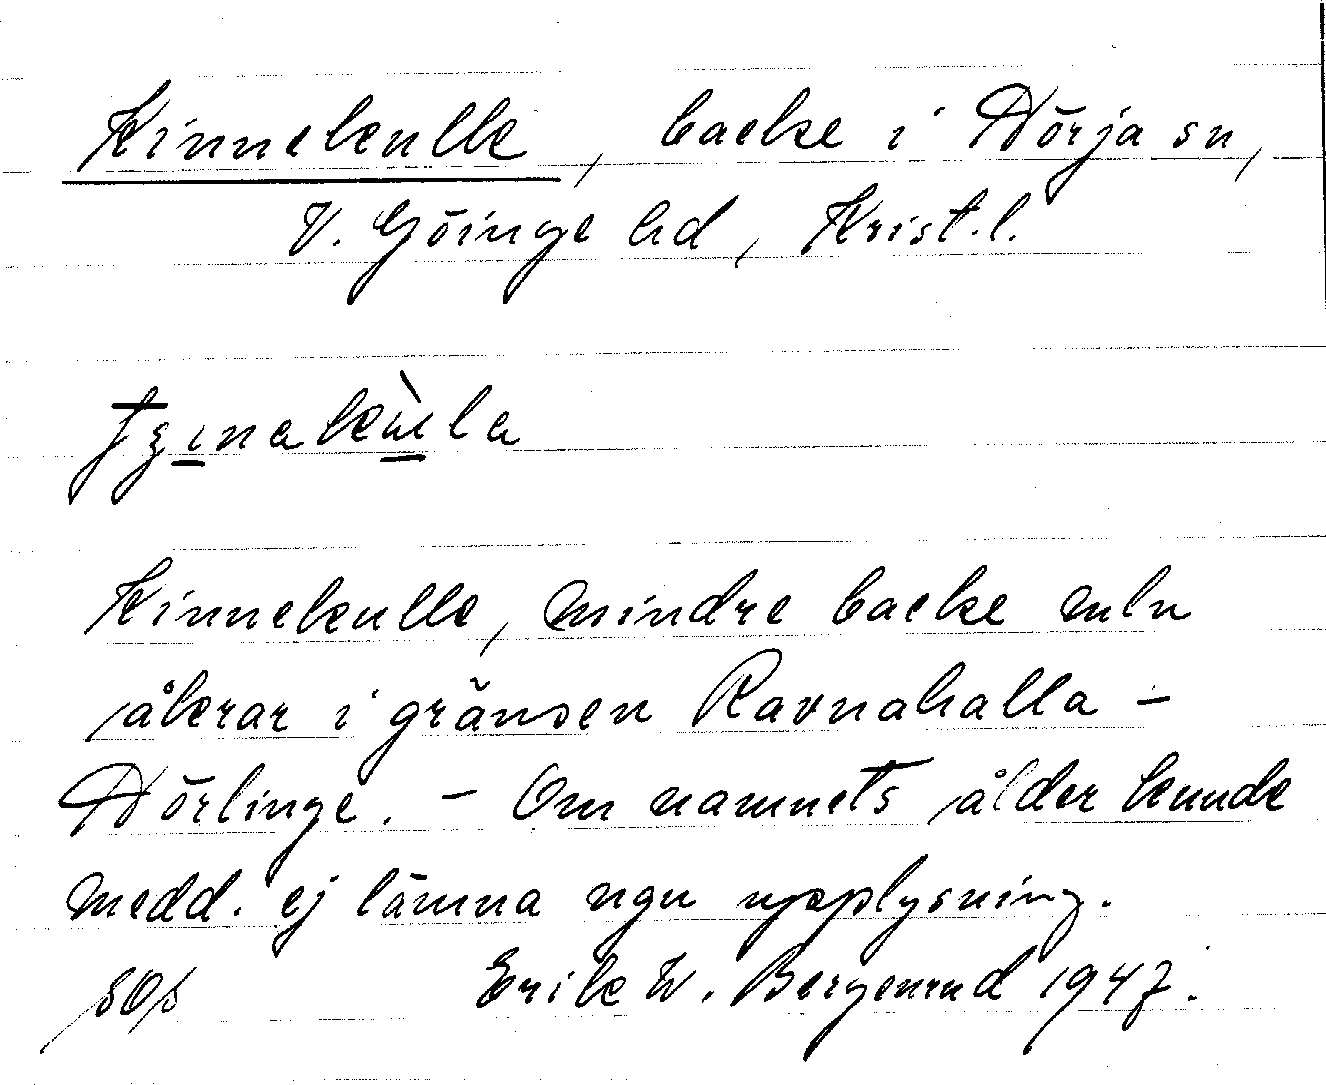 Kinnekulle, backe i Nörja sn,
V. Göinge hd, Krist. l.
Kinnekulle, mindre backe mln
åkrar i gränsen Ravnahalla -
Nörlinge. - Om namnets ålder kunde
medd. ej lämna ngn upplysning.
Erik W. Bergenrud 1947.